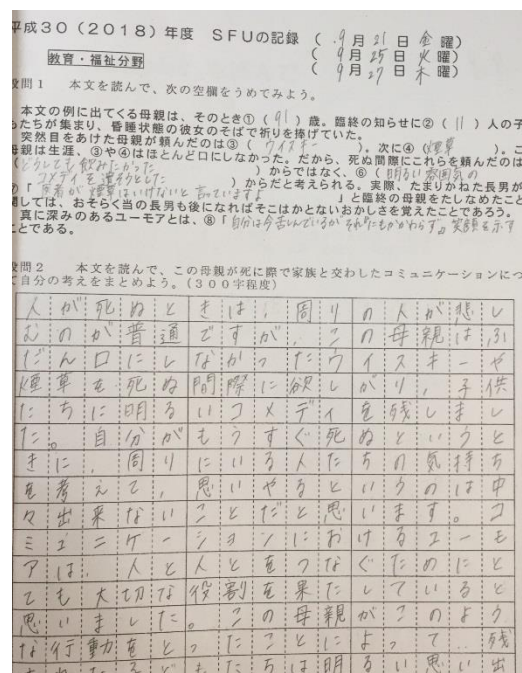 平成30(2018)年度 SFUの記録 (9月21日金曜)
(9月25日火曜)
教育・福祉分野 (9月27日木曜)
設問1 本文を読んで、次の空欄をうめてみよう。
本文の例に出てくる母親は、そのとき①(91)歳。臨終の知らせに②(11)人の子
もたちが集まり、昏睡状態の彼女のそばで祈りを捧げていた。
突然目をあけた母親が頼んだのは③(ウイスキー)。次に④(煙草)。こ
母親は生涯、③や④はほとんど口にしなかった。だから、死ぬ間際にこれらを頼んだのは
(どうしても飲みたかった)からではなく、⑥(明るい雰囲気の
コメディを演ろうとした)からだと考えられる。実際、たまりかねた長男が
「医者が煙草はいけないと言っていますよ」と臨終の母親をたしなめたこと
関しては、おそらく当の長男も後になればそこはかとないおかしさを覚えたことであろう。
真に深みのあるユーモアとは、⑧「自分は今苦しんでいるが、それにもかかわらず」笑顔を示す
ことである。
設問2 本文を読んで、この母親が死に際で家族と交わしたコミュニケーションにつ
て自分の考えをまとめよう。(300字程度)
人が死ぬときは、周りの人が悲し
むのが普通ですが、この母親はふ
だん口にしなかったウイスキーや
煙草を死ぬ間際に欲しがり、子供
たちに明るいコメディを残しまし
た。自分がもうすぐ死ぬというと
きに、周りにいる人たちの気持ち
を考えて、思いやるというのは中
々出来ないことだと思います。コ
ミュニケーションにおけるユーモ
アは、人と人とをつなぐためにと
ても大切な役割を果たしていると
思いました。この母親がこのよう
な行動をとったことによって、残
された子どもたちは明るい思い出